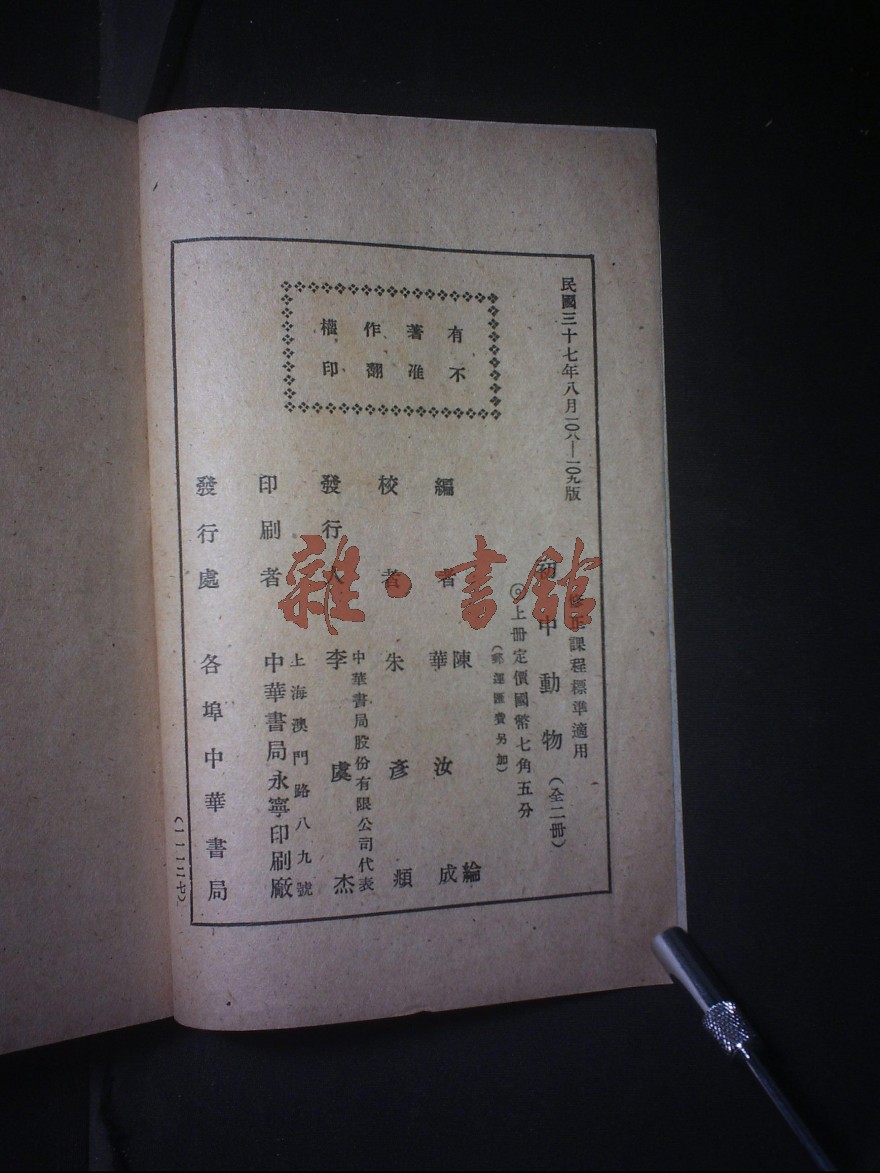 民國三十七年八月一〇八—一〇九版
修正課程標準適用
初中動物(全二冊)
◎上冊定價國幣七角五分
(郵運匯費另加)
有著作權
不准翻印
編者 陳綸
華汝成
校者 朱彥頫
發行人 李虞杰
中華書局股份有限公司代表
印刷者 中華書局永寧印刷廠
上海澳門路八九號
發行處 各埠中華書局
(一一一二七)
雜·書館